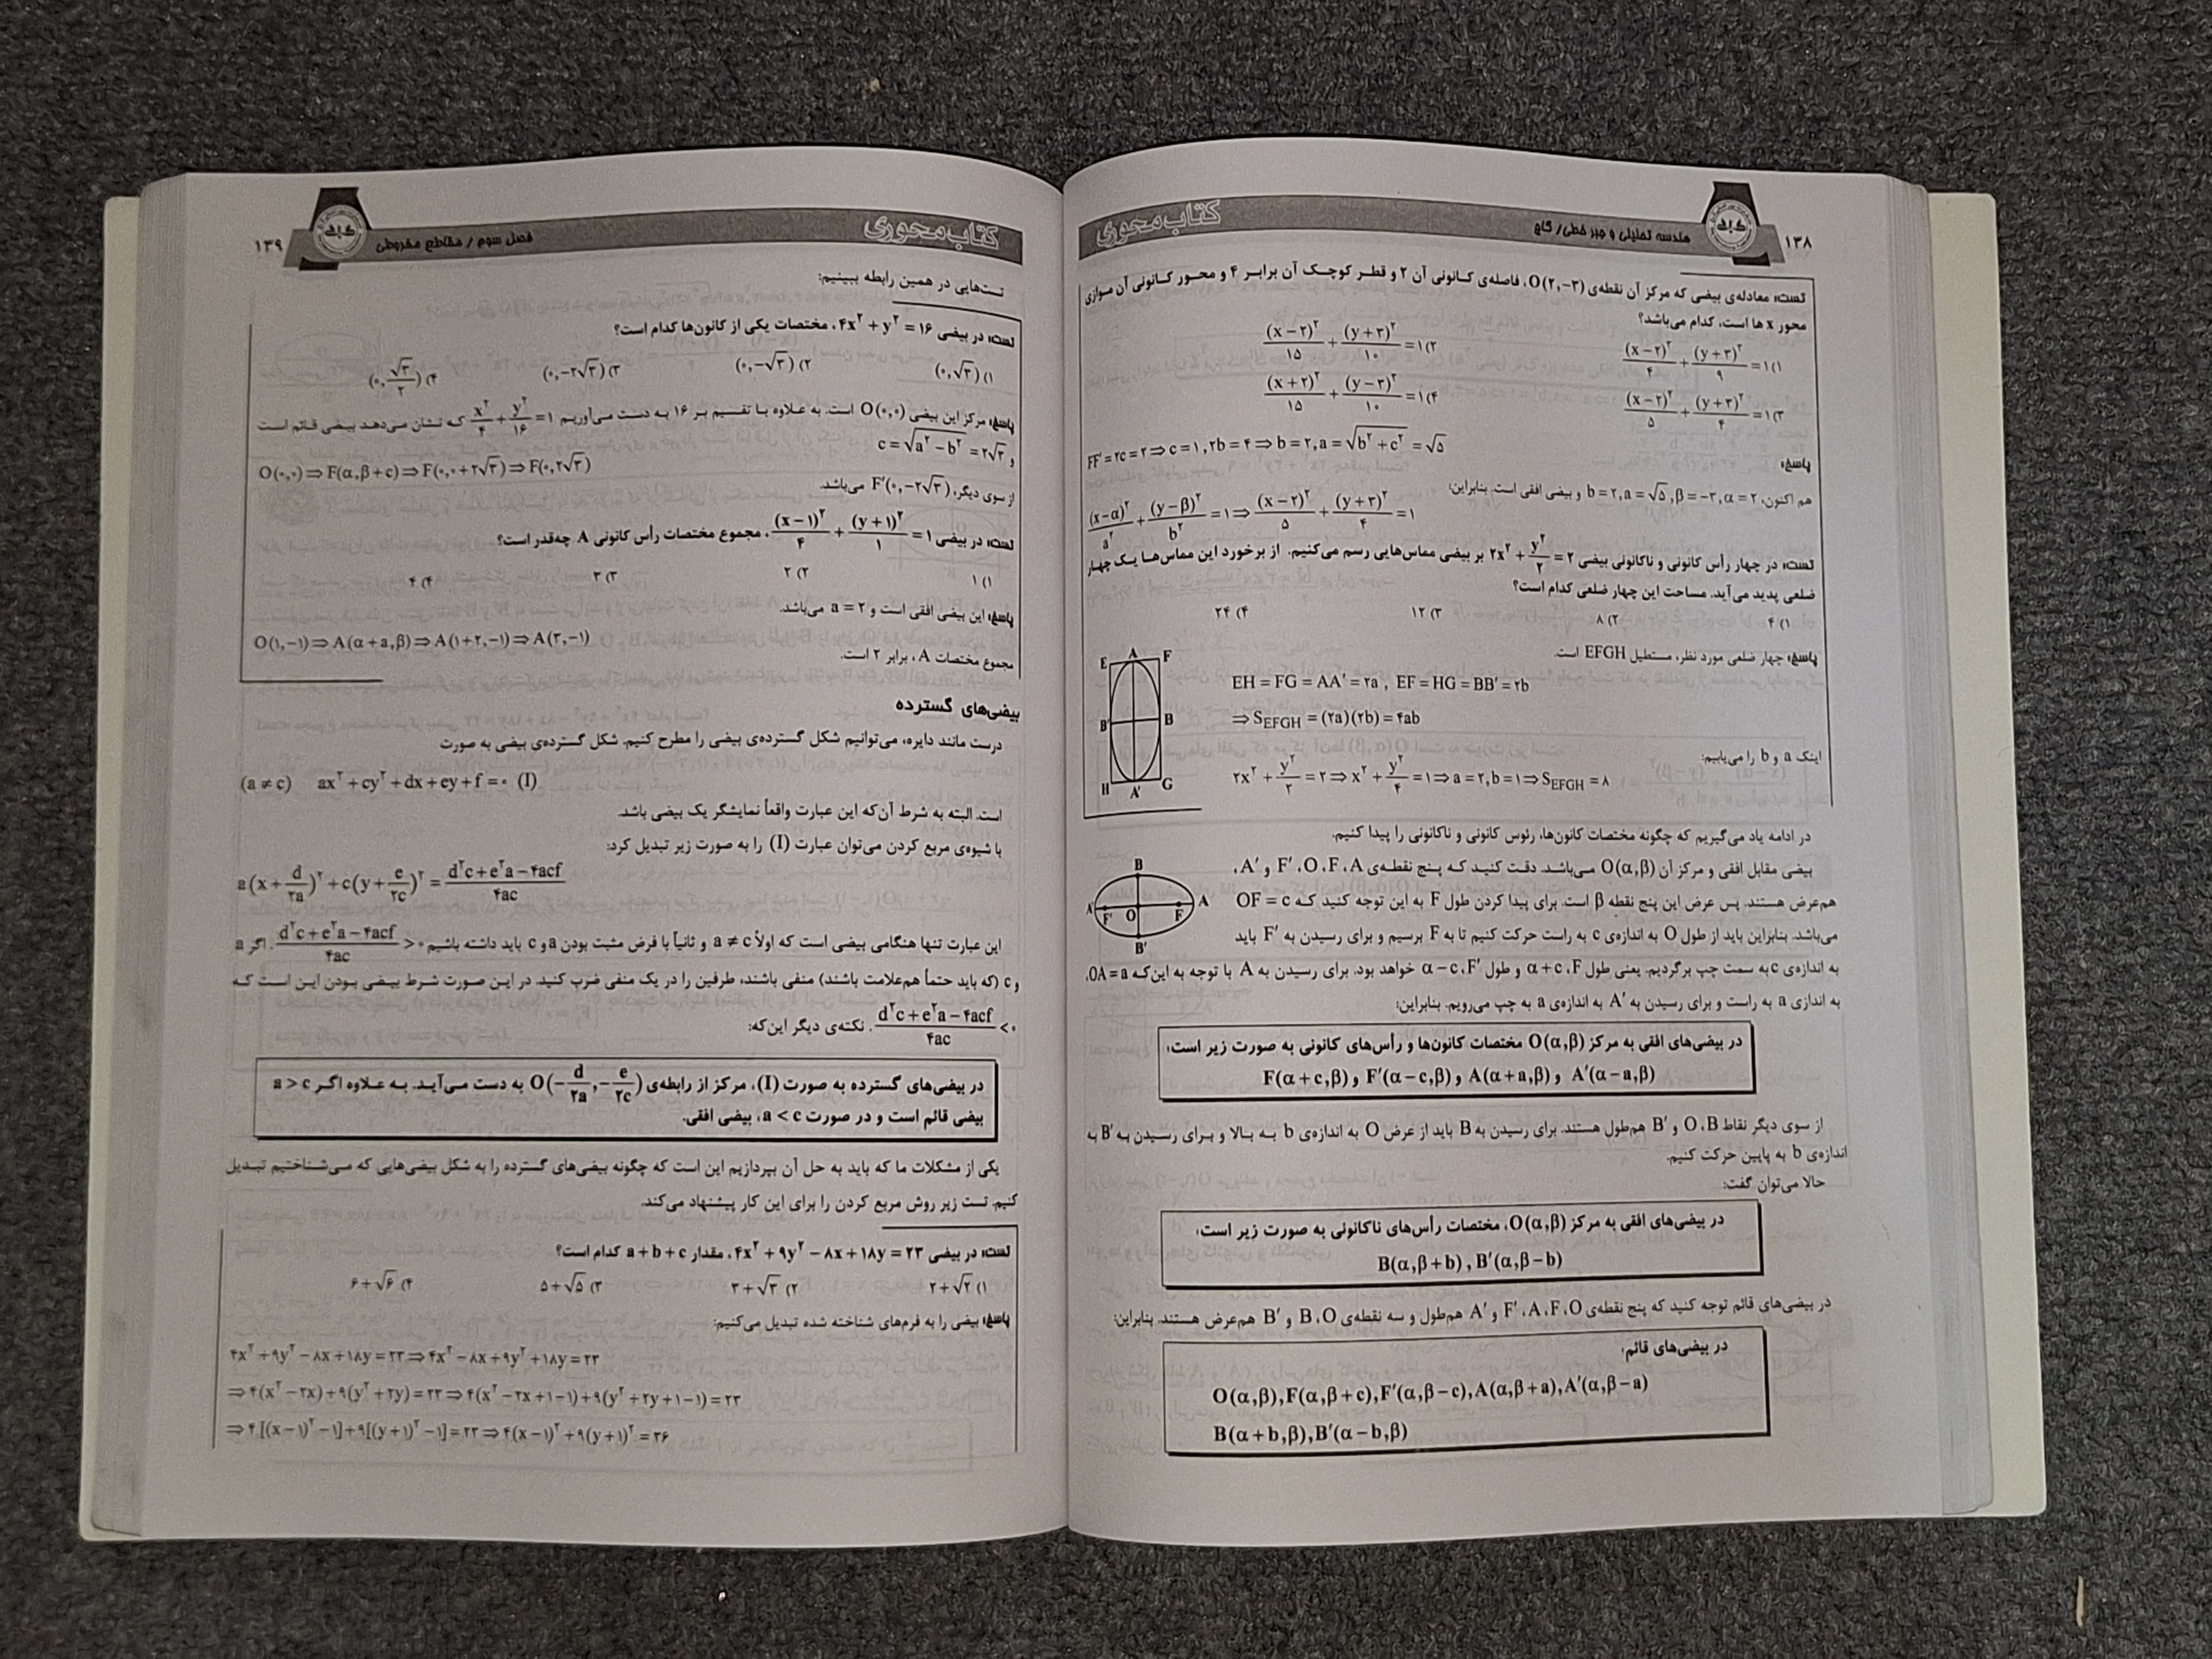 ۱۳۸
هندسه تحلیلی و جبر خطی / گاج
کتاب محوری
تست: معادله‌ی بیضی که مرکز آن نقطه‌ی O(۲,−۳)، فاصله‌ی کانونی آن ۲ و قطر کوچک آن برابر ۴ و محور کانونی آن موازی
محور x ها است، کدام می‌باشد؟
۱) (x−۲)²/۴ + (y+۳)²/۹ = ۱
۲) (x−۲)²/۱۵ + (y+۳)²/۱۰ = ۱
۳) (x−۲)²/۵ + (y+۳)²/۴ = ۱
۴) (x+۲)²/۱۵ + (y−۳)²/۱۰ = ۱
پاسخ:
FF′ = ۲c = ۲ ⇒ c = ۱, ۲b = ۴ ⇒ b = ۲, a = √(b²+c²) = √۵
هم اکنون، b = ۲, a = √۵, β = −۳, α = ۲ و بیضی افقی است. بنابراین:
(x−α)²/a² + (y−β)²/b² = ۱ ⇒ (x−۲)²/۵ + (y+۳)²/۴ = ۱
تست: در چهار رأس کانونی و ناکانونی بیضی ۲x² + y²/۲ = ۲ بر بیضی مماس‌هایی رسم می‌کنیم. از برخورد این مماس‌ها یک چهار
ضلعی پدید می‌آید. مساحت این چهار ضلعی کدام است؟
۱) ۴
۲) ۸
۳) ۱۲
۴) ۲۴
پاسخ: چهار ضلعی مورد نظر، مستطیل EFGH است.
EH = FG = AA′ = ۲a , EF = HG = BB′ = ۲b
⇒ S_EFGH = (۲a)(۲b) = ۴ab
اینک a و b را می‌یابیم:
۲x² + y²/۲ = ۲ ⇒ x² + y²/۴ = ۱ ⇒ a = ۲, b = ۱ ⇒ S_EFGH = ۸
E A F
B′ B
H A′ G
در ادامه یاد می‌گیریم که چگونه مختصات کانون‌ها، رئوس کانونی و ناکانونی را پیدا کنیم.
بیضی مقابل افقی و مرکز آن O(α,β) می‌باشد. دقت کنید که پنج نقطه‌ی F′ ،O ،F ،A و A′،
هم‌عرض هستند. پس عرض این پنج نقطه β است. برای پیدا کردن طول F به این توجه کنید که OF = c
می‌باشد. بنابراین باید از طول O به اندازه‌ی c به راست حرکت کنیم تا به F برسیم و برای رسیدن به F′ باید
به اندازه‌ی c به سمت چپ برگردیم. یعنی طول F، α+c و طول F′، α−c خواهد بود. برای رسیدن به A با توجه به این‌که OA = a،
به اندازی a به راست و برای رسیدن به A′ به اندازه‌ی a به چپ می‌رویم. بنابراین:
B
A′ F′ O F A
B′
در بیضی‌های افقی به مرکز O(α,β) مختصات کانون‌ها و رأس‌های کانونی به صورت زیر است:
F(α+c,β) و F′(α−c,β) و A(α+a,β) و A′(α−a,β)
از سوی دیگر نقاط O ،B و B′ هم‌طول هستند. برای رسیدن به B باید از عرض O به اندازه‌ی b به بالا و برای رسیدن به B′ به
اندازه‌ی b به پایین حرکت کنیم.
حالا می‌توان گفت:
در بیضی‌های افقی به مرکز O(α,β)، مختصات رأس‌های ناکانونی به صورت زیر است:
B(α,β+b) , B′(α,β−b)
در بیضی‌های قائم توجه کنید که پنج نقطه‌ی F′ ،A ،F ،O و A′ هم‌طول و سه نقطه‌ی B ،O و B′ هم‌عرض هستند. بنابراین:
در بیضی‌های قائم:
O(α,β), F(α,β+c), F′(α,β−c), A(α,β+a), A′(α,β−a)
B(α+b,β), B′(α−b,β)
کتاب محوری
فصل سوم / مقاطع مخروطی
۱۳۹
تست‌هایی در همین رابطه ببینیم:
تست: در بیضی ۴x² + y² = ۱۶، مختصات یکی از کانون‌ها کدام است؟
۱) (۰,√۳)
۲) (۰,−√۳)
۳) (۰,−۲√۳)
۴) (۰,√۳/۲)
پاسخ: مرکز این بیضی O(۰,۰) است. به علاوه با تقسیم بر ۱۶ به دست می‌آوریم x²/۴ + y²/۱۶ = ۱ که نشان می‌دهد بیضی قائم است
و c = √(a²−b²) = ۲√۳
O(۰,۰) ⇒ F(α,β+c) ⇒ F(۰,۰+۲√۳) ⇒ F(۰,۲√۳)
از سوی دیگر، F′(۰,−۲√۳) می‌باشد.
تست: در بیضی (x−۱)²/۴ + (y+۱)²/۱ = ۱، مجموع مختصات رأس کانونی A چه‌قدر است؟
۱) ۱
۲) ۲
۳) ۳
۴) ۴
پاسخ: این بیضی افقی است و a = ۲ می‌باشد.
O(۱,−۱) ⇒ A(α+a,β) ⇒ A(۱+۲,−۱) ⇒ A(۳,−۱)
مجموع مختصات A، برابر ۲ است.
بیضی‌های گسترده
درست مانند دایره، می‌توانیم شکل گسترده‌ی بیضی را مطرح کنیم. شکل گسترده‌ی بیضی به صورت
(a ≠ c) ax² + cy² + dx + ey + f = ۰ (I)
است. البته به شرط آن‌که این عبارت واقعاً نمایشگر یک بیضی باشد.
با شیوه‌ی مربع کردن می‌توان عبارت (I) را به صورت زیر تبدیل کرد:
a(x + d/۲a)² + c(y + e/۲c)² = (d²c + e²a − ۴acf)/۴ac
این عبارت تنها هنگامی بیضی است که اولاً a ≠ c و ثانیاً با فرض مثبت بودن a و c باید داشته باشیم (d²c + e²a − ۴acf)/۴ac > ۰. اگر a
و c (که باید حتماً هم‌علامت باشند) منفی باشند، طرفین را در یک منفی ضرب کنید. در این صورت شرط بیضی بودن این است که
(d²c + e²a − ۴acf)/۴ac < ۰. نکته‌ی دیگر این‌که:
در بیضی‌های گسترده به صورت (I)، مرکز از رابطه‌ی O(−d/۲a, −e/۲c) به دست می‌آید. به علاوه اگر a > c
بیضی قائم است و در صورت a < c، بیضی افقی.
یکی از مشکلات ما که باید به حل آن بپردازیم این است که چگونه بیضی‌های گسترده را به شکل بیضی‌هایی که می‌شناختیم تبدیل
کنیم. تست زیر روش مربع کردن را برای این کار پیشنهاد می‌کند.
تست: در بیضی ۴x² + ۹y² − ۸x + ۱۸y = ۲۳، مقدار a + b + c کدام است؟
۱) ۲+√۲
۲) ۳+√۳
۳) ۵+√۵
۴) ۶+√۶
پاسخ: بیضی را به فرم‌های شناخته شده تبدیل می‌کنیم:
۴x² + ۹y² − ۸x + ۱۸y = ۲۳ ⇒ ۴x² − ۸x + ۹y² + ۱۸y = ۲۳
⇒ ۴(x² − ۲x) + ۹(y² + ۲y) = ۲۳ ⇒ ۴(x² − ۲x + ۱ − ۱) + ۹(y² + ۲y + ۱ − ۱) = ۲۳
⇒ ۴[(x−۱)² − ۱] + ۹[(y+۱)² − ۱] = ۲۳ ⇒ ۴(x−۱)² + ۹(y+۱)² = ۳۶